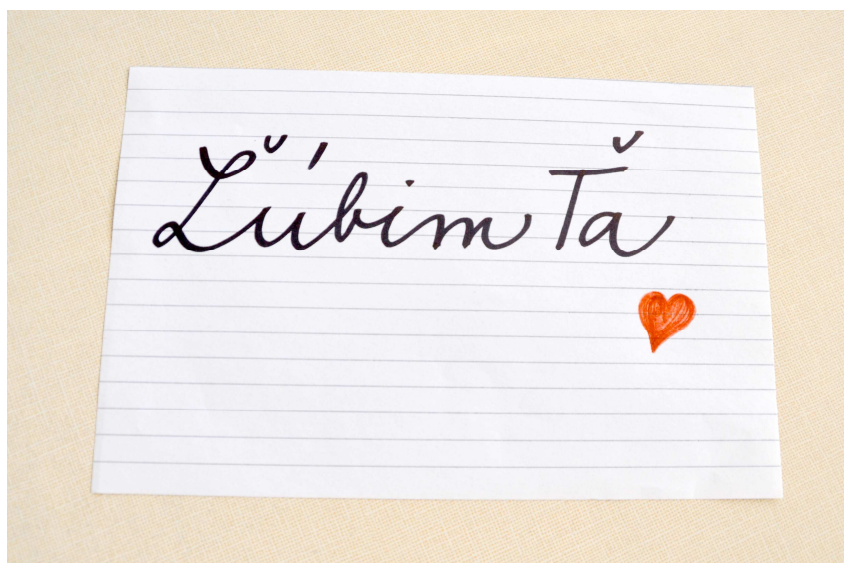 Ľúbim Ťa